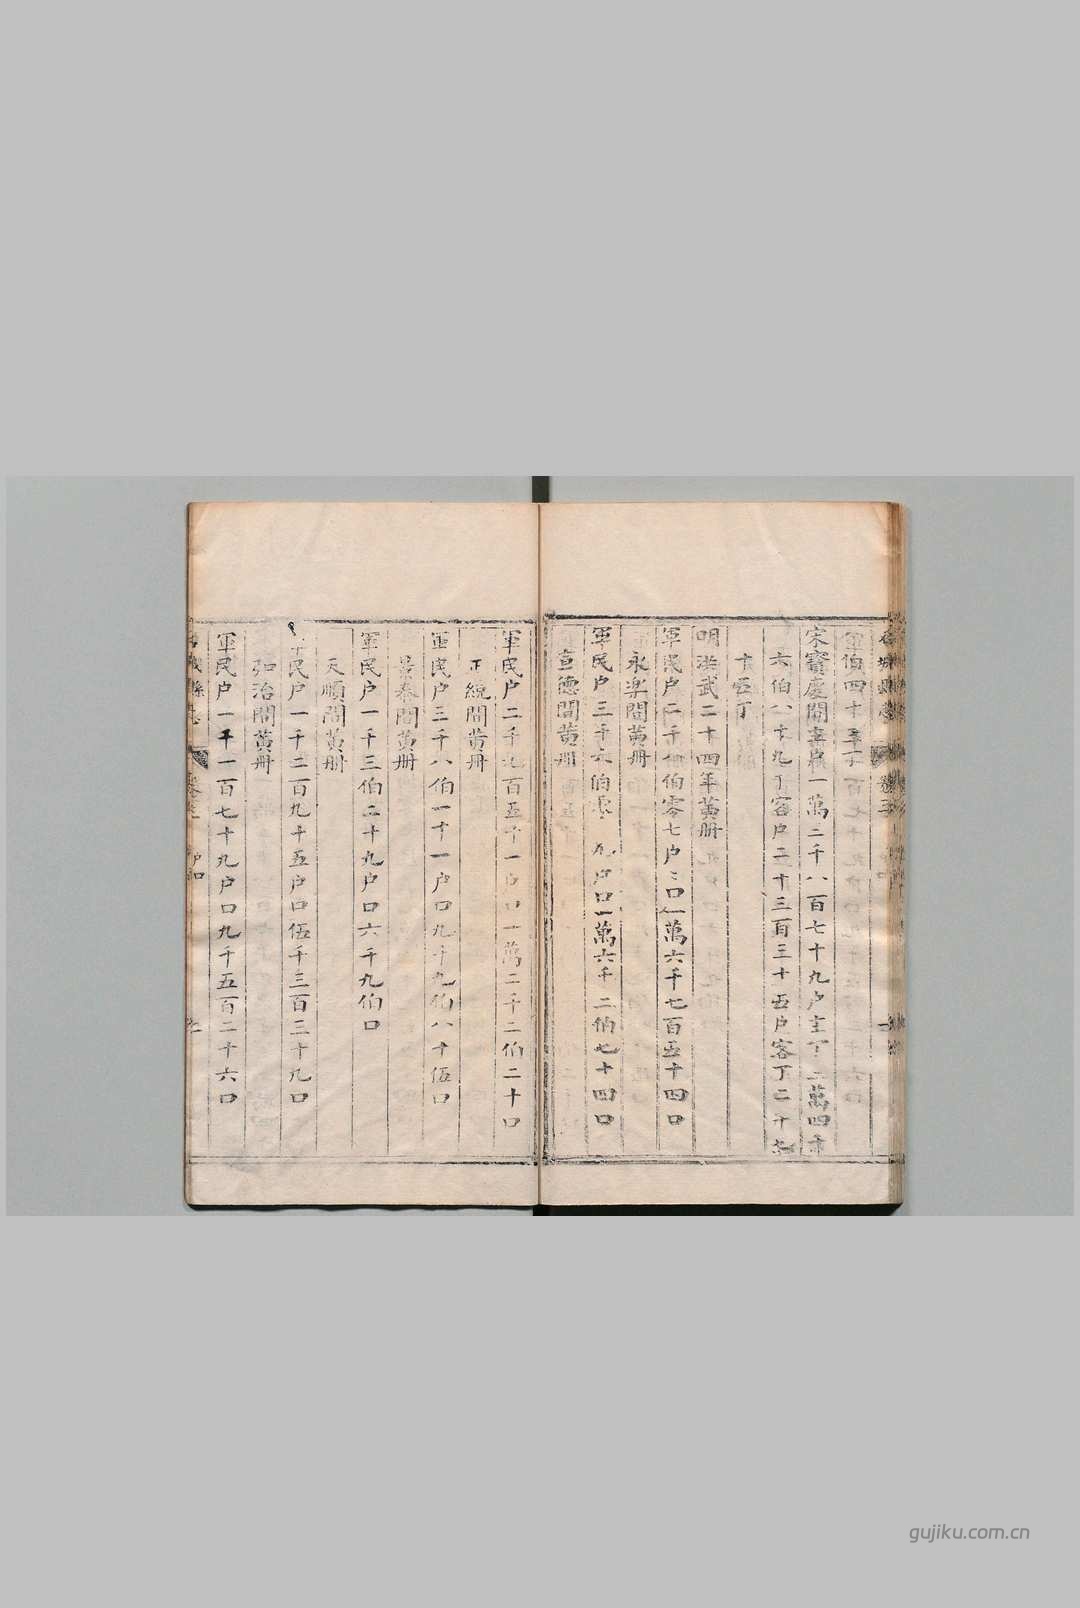 伯四十五丁
宋寶慶間主客一萬二千八百七十九户主丁二萬四千
六伯八十九丁客户二千三百三十五户客丁二千七
十五丁
明洪武二十四年黄册
軍民户二千伯零七户口一萬六千七百五十四口
永樂間黄册
軍民户三千六伯九户口一萬六千二伯七十四口
宣德間黄册
軍民户二千九百五十一户口一萬二千二伯二十口
正統間黄册
軍民户三千八伯一十一户口九千九伯八十伍口
景泰間黄册
軍民户一千三伯二十九户口六千九伯口
天順間黄册
民户一千二百九十五户口伍千三百三十九口
弘治間黄册
軍民户一千一百七十九户口九千五百二十六口
户口
gujiku.com.cn